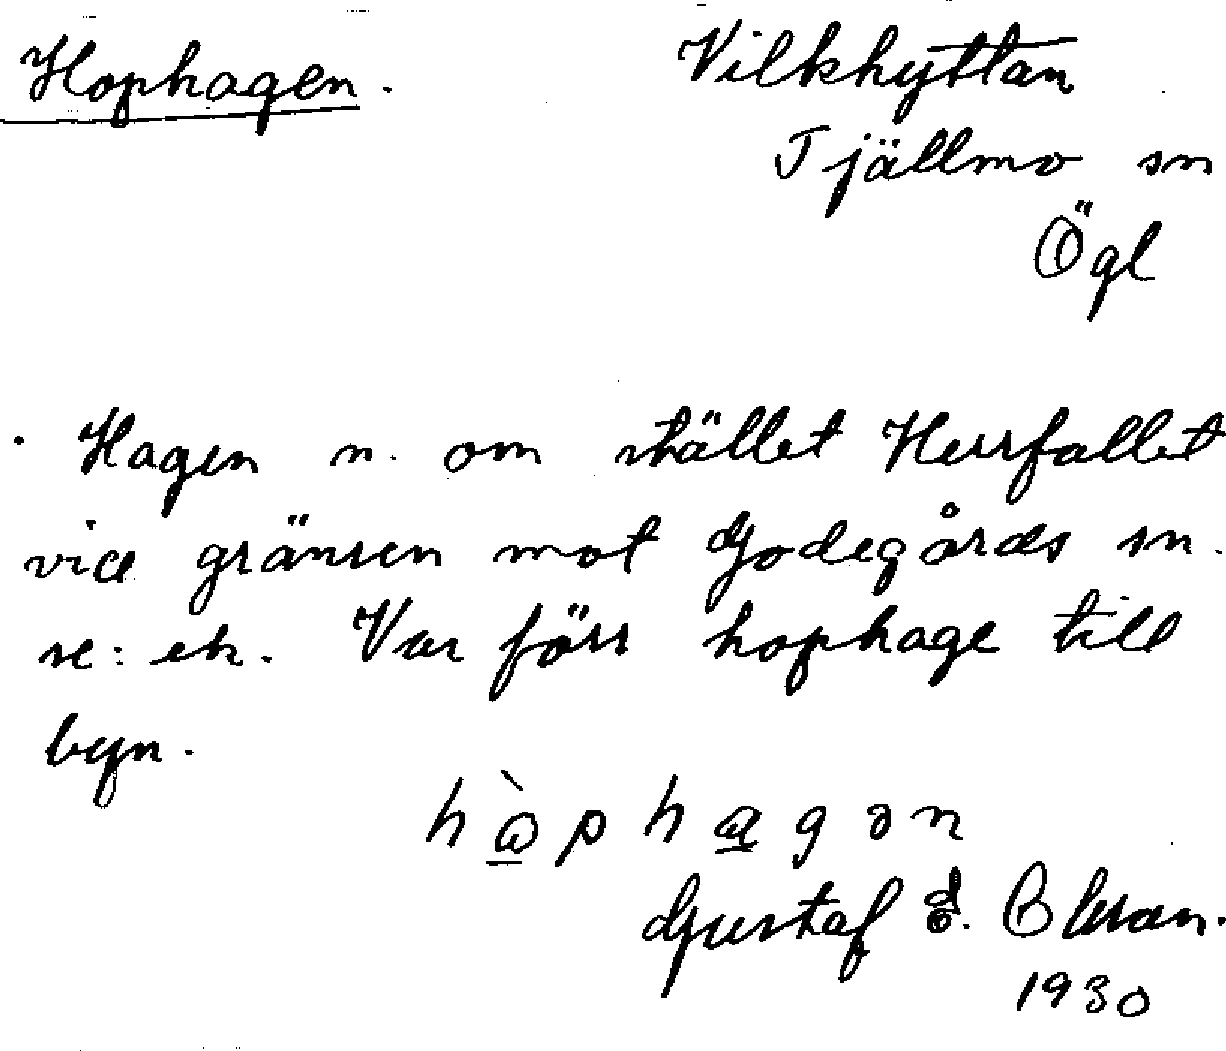 Hophagen. Vilkhyttan
Tjällmo sn
Ögl
Hagen n. om stället Herrfallet
vid gränsen mot Godegårds sn.
se: ek. Var förr hophage till
byn.
hòphagən
Gustaf Ohlson.
1930